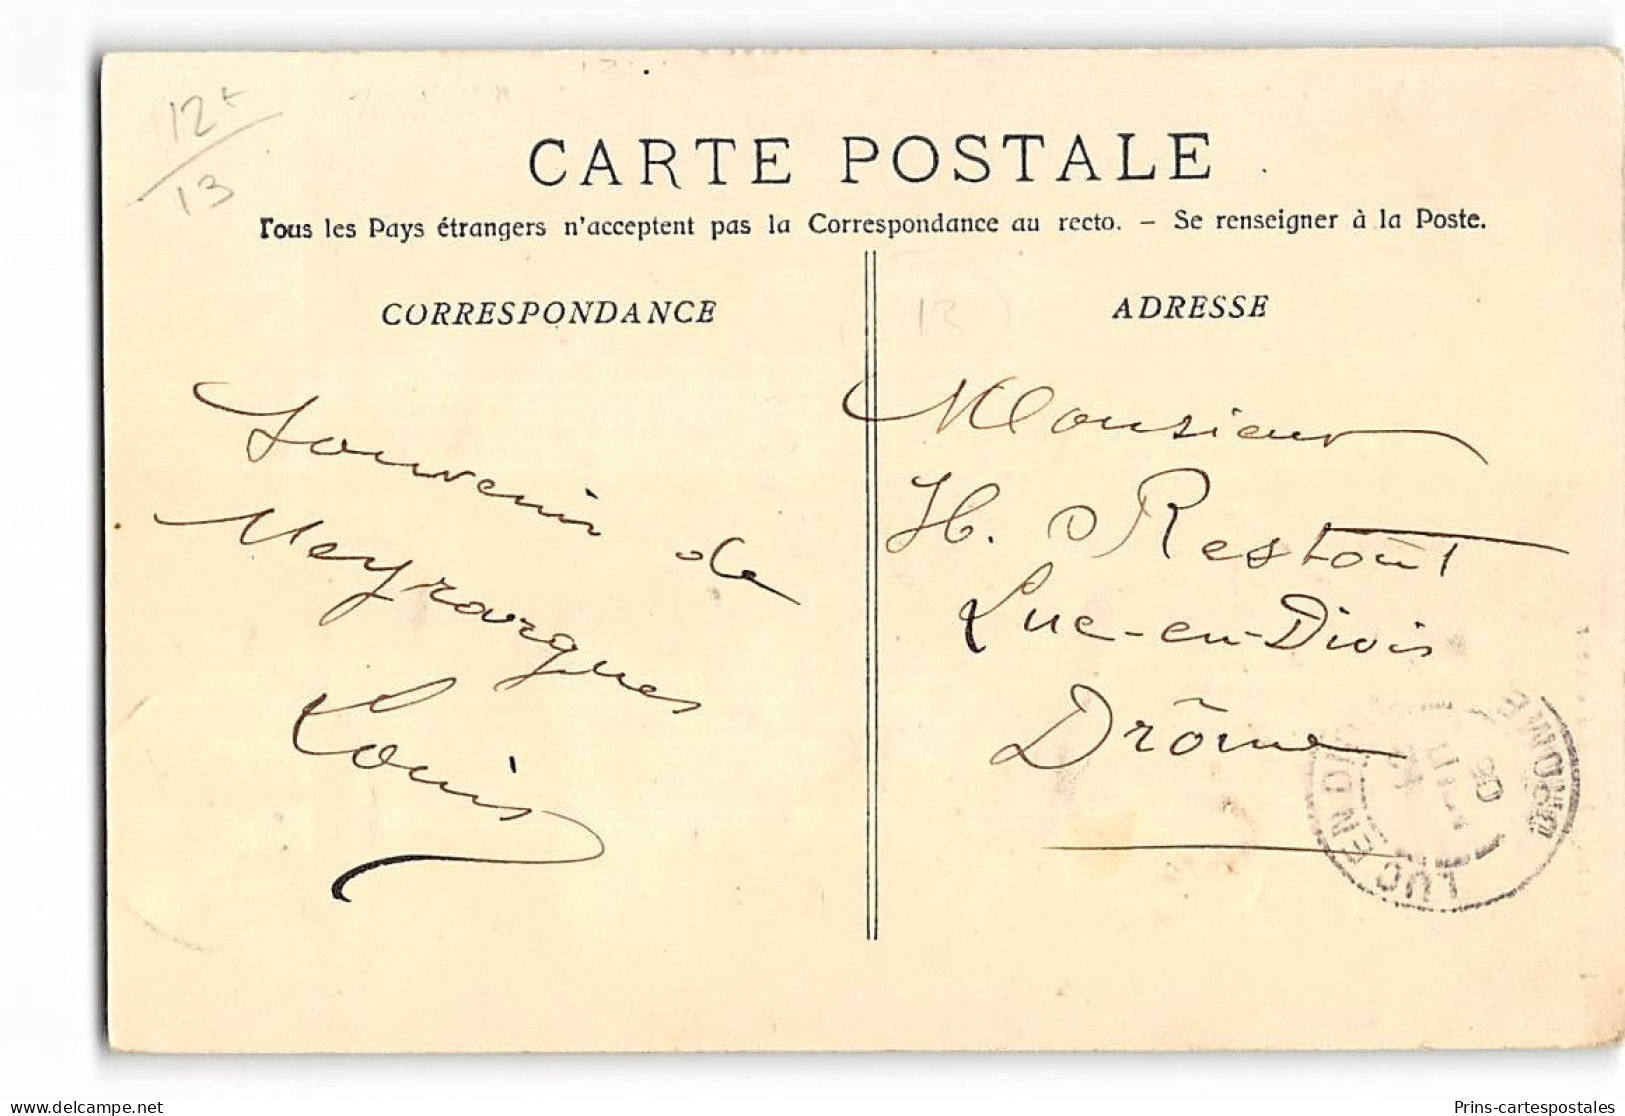 12€
13
CARTE POSTALE
Tous les Pays étrangers n'acceptent pas la Correspondance au recto. — Se renseigner à la Poste.
CORRESPONDANCE
Souvenir de
Meyrargues
Louis
13
ADRESSE
Monsieur
H. Restout
Luc-en-Diois
Drôme
LUC EN DIOIS
DROME
delcampe.net
Prins-cartespostales